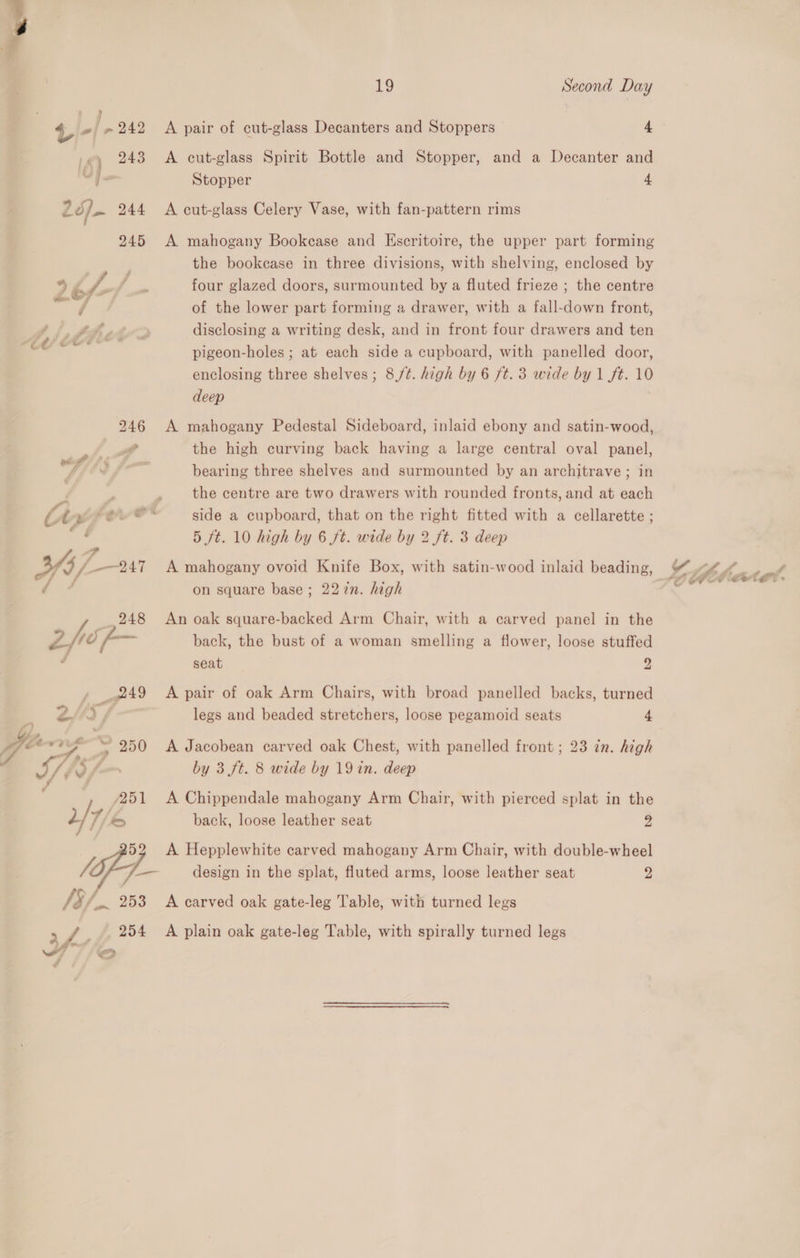 19 Second Day
242 A pair of cut-glass Decanters and Stoppers 4
243 A cut-glass Spirit Bottle and Stopper, and a Decanter and
Stopper 4
244 A cut-glass Celery Vase, with fan-pattern rims
245 A mahogany Bookcase and Escritoire, the upper part forming
the bookcase in three divisions, with shelving, enclosed by
four glazed doors, surmounted by a fluted frieze ; the centre
of the lower part forming a drawer, with a fall-down front,
disclosing a writing desk, and in front four drawers and ten
pigeon-holes ; at each side a cupboard, with panelled door,
enclosing three shelves ; 8 ft. high by 6 ft. 3 wide by 1 ft. 10
deep
246 A mahogany Pedestal Sideboard, inlaid ebony and satin-wood,
the high curving back having a large central oval panel,
bearing three shelves and surmounted by an architrave ; in
the centre are two drawers with rounded fronts, and at each
side a cupboard, that on the right fitted with a cellarette ;
5 ft. 10 high by 6 ft. wide by 2 ft. 3 deep
247 A mahogany ovoid Knife Box, with satin-wood inlaid beading,
on square base ; 22 in. high
248 An oak square-backed Arm Chair, with a carved panel in the
back, the bust of a woman smelling a flower, loose stuffed
seat 2
249 A pair of oak Arm Chairs, with broad panelled backs, turned
legs and beaded stretchers, loose pegamoid seats 4
250 A Jacobean carved oak Chest, with panelled front ; 23 in. high
by 3 ft. 8 wide by 19 in. deep
251 A Chippendale mahogany Arm Chair, with pierced splat in the
back, loose leather seat 2
252 A Hepplewhite carved mahogany Arm Chair, with double-wheel
design in the splat, fluted arms, loose leather seat 2
253 A carved oak gate-leg Table, with turned legs
254 A plain oak gate-leg Table, with spirally turned legs